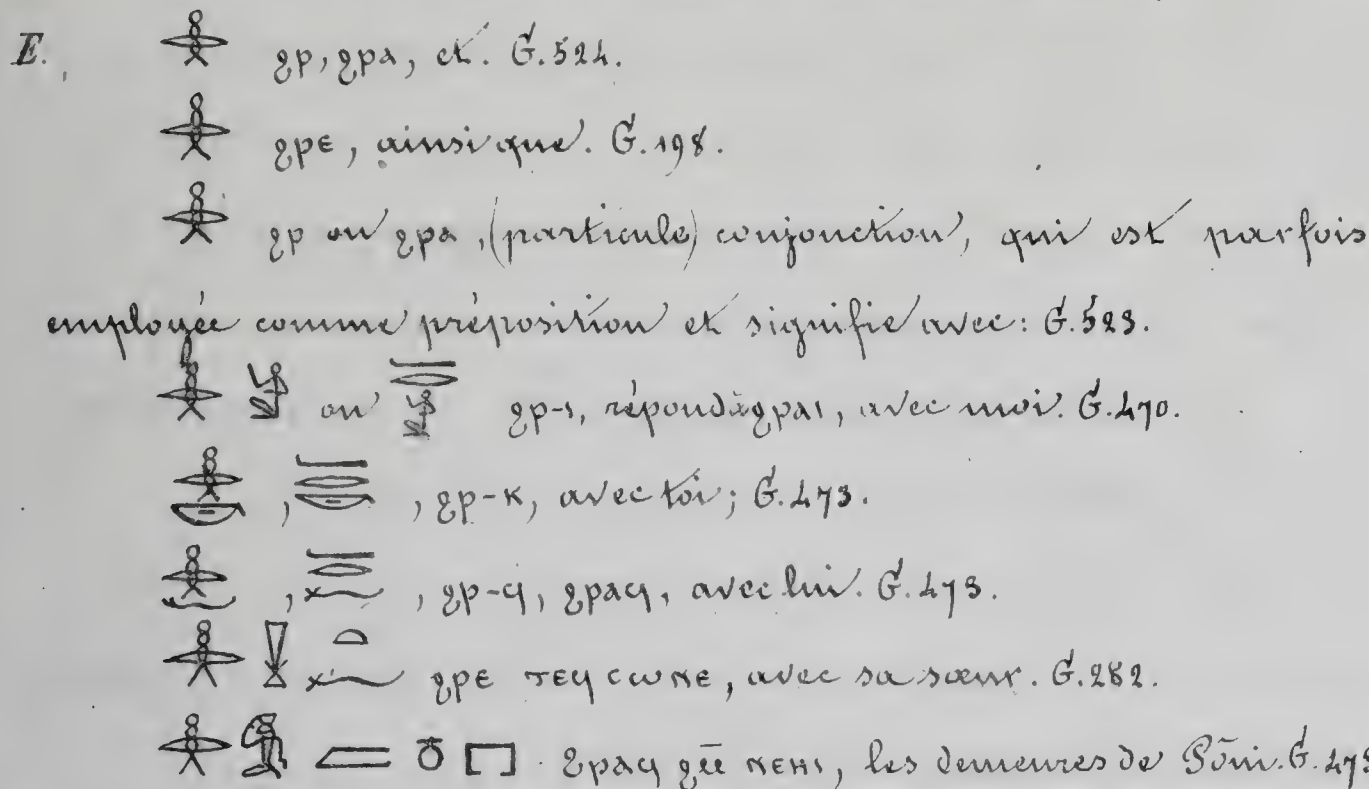 E. ϩⲣ, ϩⲣⲁ, et. G. 524.
ϩⲣⲉ, ainsi que. G. 198.
ϩⲣ ou ϩⲣⲁ, (particule) conjonction, qui est parfois
employée comme préposition et signifie avec: G. 523.
ou ϩⲣ-ⲓ, répond à ϩⲣⲁⲓ, avec moi. G. 470.
, , ϩⲣ-ⲕ, avec toi; G. 473.
, , ϩⲣ-ϥ, ϩⲣⲁϥ, avec lui. G. 473.
ϩⲣⲉ ⲧⲉϥ ⲥⲱⲛⲉ, avec sa sœur. G. 282.
ϩⲣⲁϥ ⲛⲉⲏⲓ, les demeures de